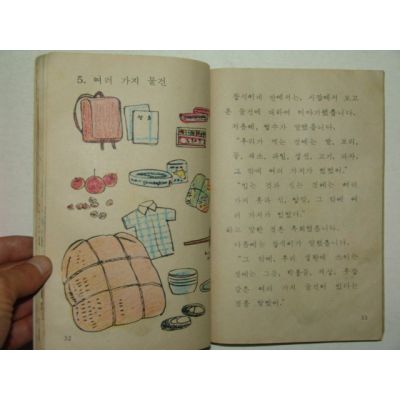 5. 여러 가지 물건
32
창식이네 반에서는, 시장에서 보고
온 물건에 대하여 이야기했읍니다.
처음에, 철수가 말했읍니다.
"우리가 먹는 것에는 쌀, 보리,
콩, 채소, 과일, 생선, 고기, 과자,
그 밖에 여러 가지가 있었다."
"입는 것과 신는 것에는 여러
가지 옷과 신, 양말, 그 밖에 여
러 가지가 있었다."
하고 말한 것은 복희였읍니다.
다음에는 창식이가 말했읍니다.
"그 밖에, 우리 생활에 쓰이는
것에는 그릇, 학용품, 책상, 옷장
같은 여러 가지 물건이 있다는
것을 알았어."
33